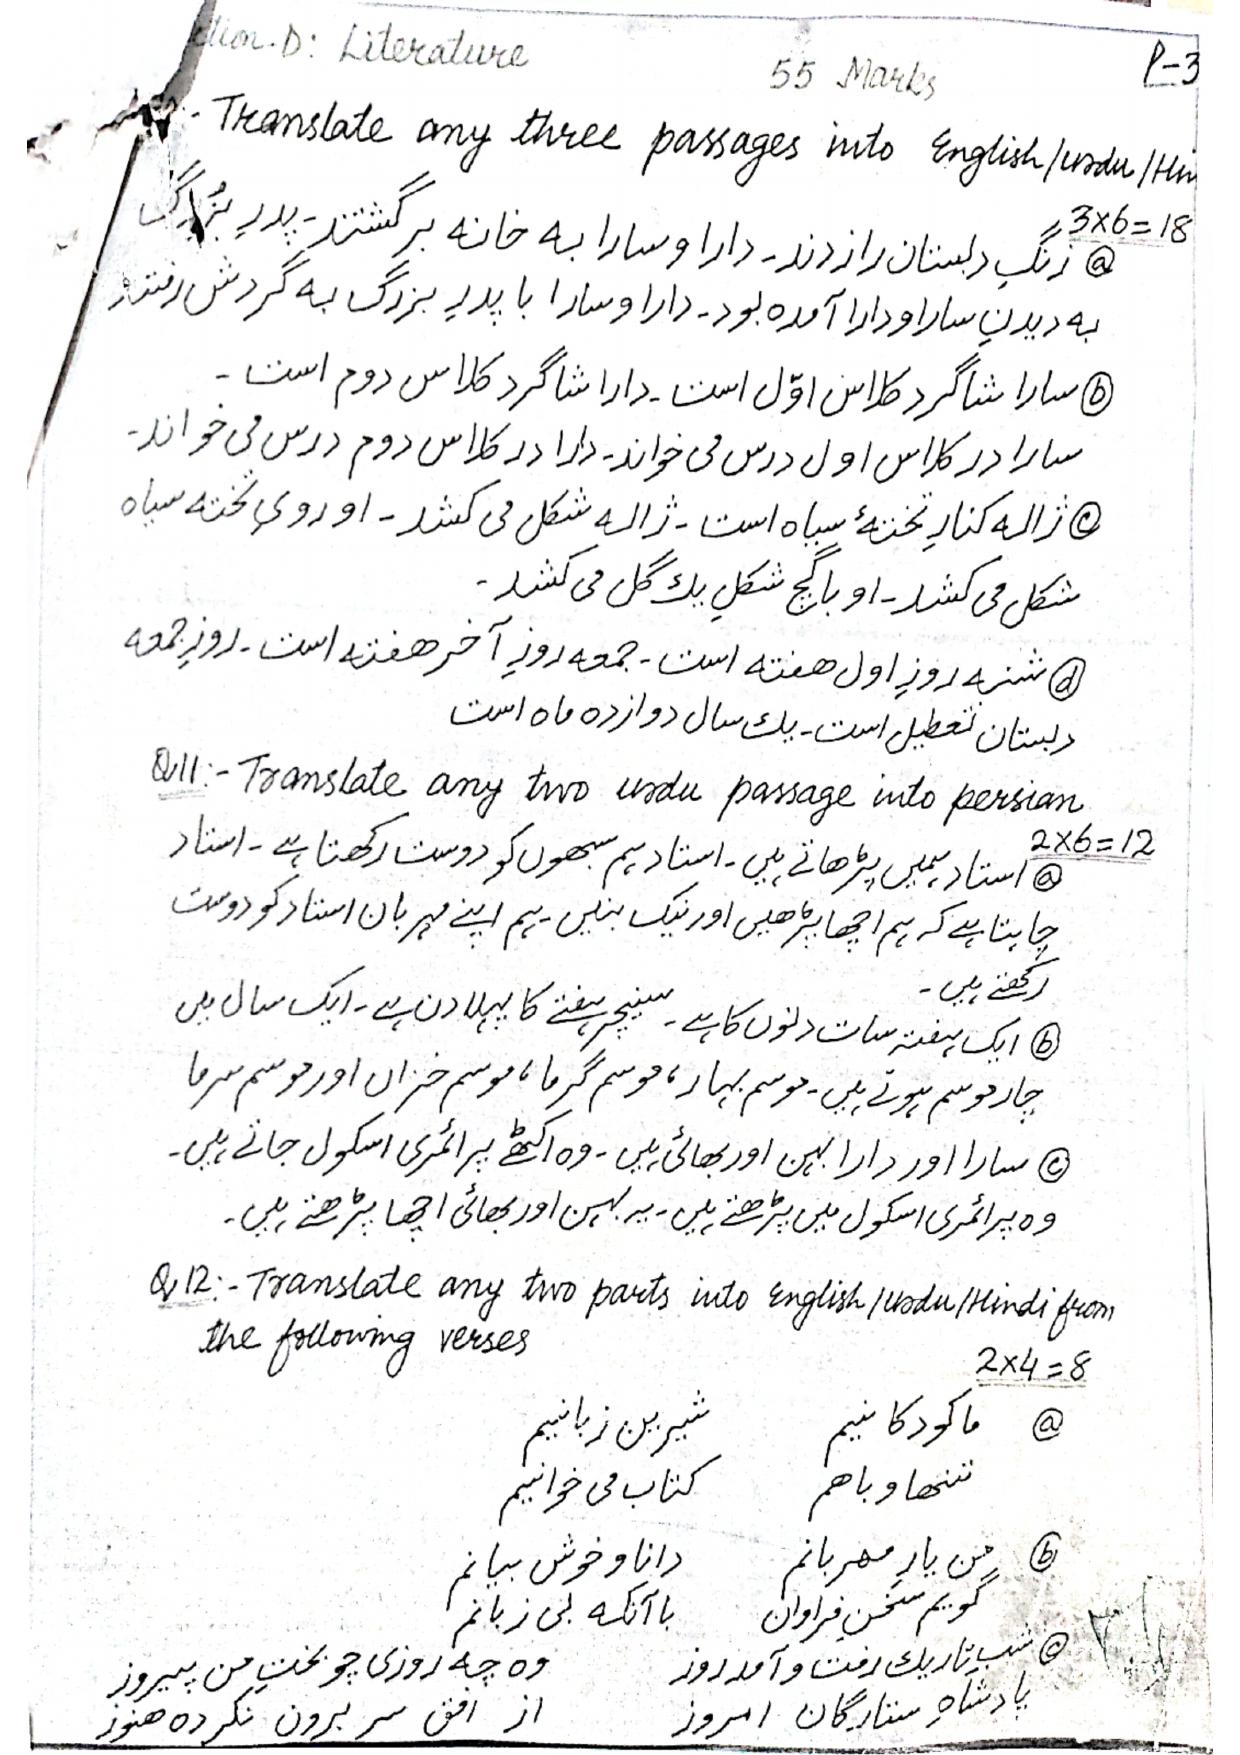 tion-D: Literature
55 Marks
P-3
:- Translate any three passages into English/urdu/Hin
3x6=18
ⓐ زنگِ دبستان را زدند۔ دارا و سارا به خانه بر گشتند۔ پدرِ بُزرگ
به دیدنِ سارا و دارا آمده بود۔ دارا و سارا با پدرِ بزرگ به گردش رفتند
ⓑ سارا شاگرد کلاس اوّل است۔ دارا شاگرد کلاس دوم است۔
سارا در کلاس اول درس می خواند۔ دارا در کلاس دوم درس می خواند۔
ⓒ ژاله کنارِ تختهٔ سیاه است۔ ژاله شکل می کشد۔ او رویِ تخته سیاه
شکل می کشد۔ او با گچ شکلِ یک گل می کشد۔
ⓓ شنبه روزِ اول هفته است۔ جمعه روزِ آخر هفته است۔ روزِ جمعه
دبستان تعطیل است۔ یک سال دوازده ماه است
Q11:- Translate any two urdu passage into persian
2x6=12
ⓐ استاد ہمیں پڑھاتے ہیں۔ استاد ہم سبھوں کو دوست رکھتا ہے۔ استاد
چاہتا ہے کہ ہم اچھا پڑھیں اور نیک بنیں۔ ہم اپنے مہربان استاد کو دوست
رکھتے ہیں۔
ⓑ ایک ہفتہ سات دنوں کا ہے۔ سینیچر ہفتے کا پہلا دن ہے۔ ایک سال میں
چار موسم ہوتے ہیں۔ موسم بہار، موسم گرما، موسم خزاں اور موسم سرما
ⓒ سارا اور دارا بہن اور بھائی ہیں۔ وہ اکٹھے پرائمری اسکول جاتے ہیں۔
وہ پرائمری اسکول میں پڑھتے ہیں۔ یہ بہن اور بھائی اچھا پڑھتے ہیں۔
Q12:- Translate any two parts into English/urdu/Hindi from
the following verses
2x4=8
ⓐ ما کودکانیم شیرین زبانیم
تنها و باهم کتاب می خوانیم
ⓑ من یارِ مهربانم دانا و خوش بیانم
گویم سخنِ فراوان با آنکه بی زبانم
ⓒ شبِ تاریک رفت و آمد روز وه چه روزی چو بختِ من پیروز
پادشاهِ ستارگان امروز از افق سر برون نکرده هنوز